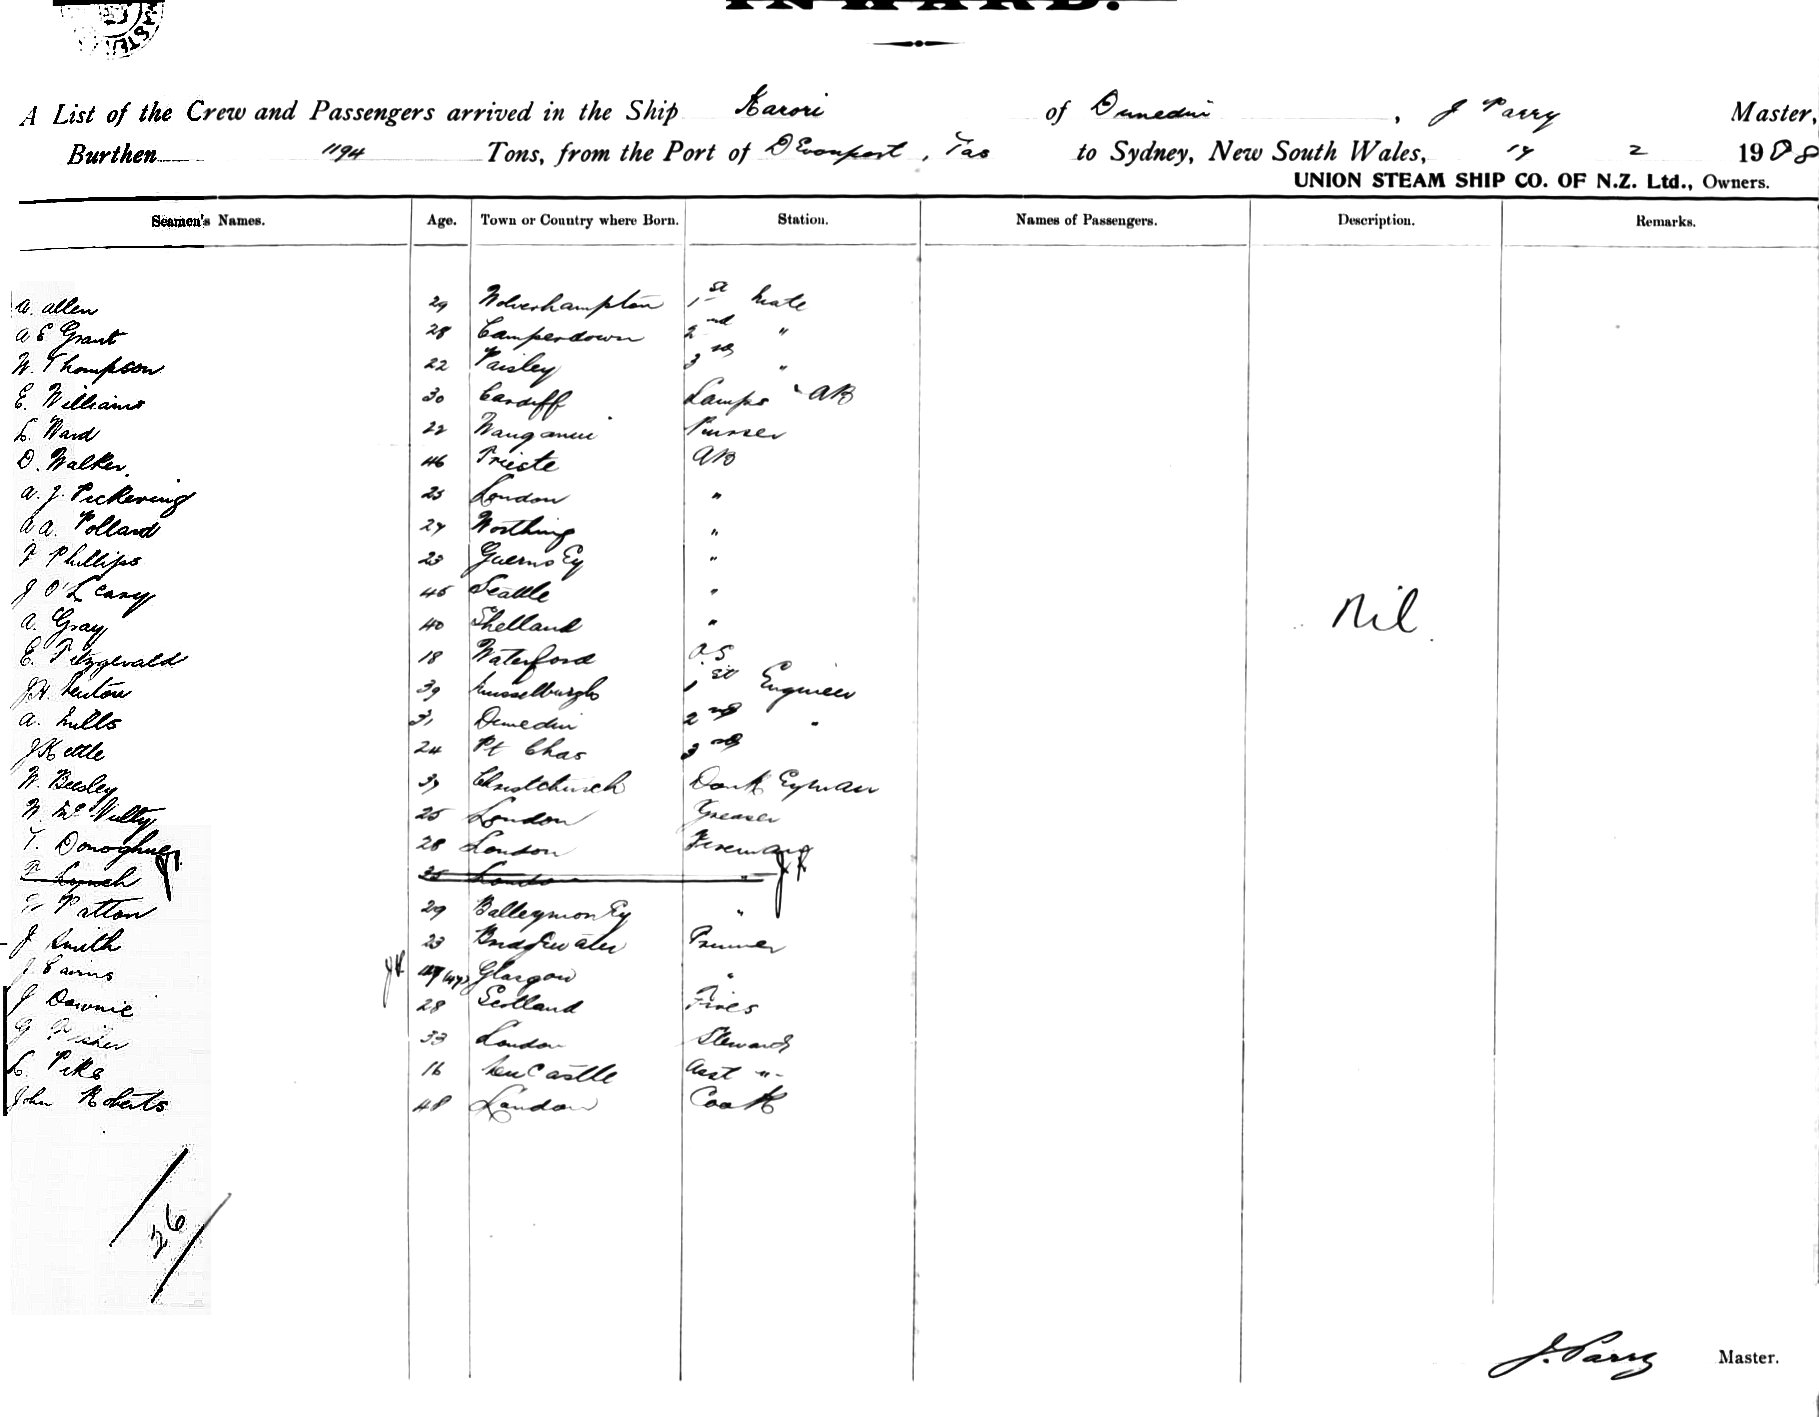 INWARD.
A List of the Crew and Passengers arrived in the Ship Karori of Dunedin, J Parry Master,
Burthen 1194 Tons, from the Port of DEvonport, Tas to Sydney, New South Wales, 14 2 1908
UNION STEAM SHIP CO. OF N.Z. Ltd., Owners.
Seamen's Names. Age. Town or Country where Born. Station. Names of Passengers. Description. Remarks.
A. Allen 29 Wolverhampton 1st Mate
A E Grant 28 Camperdown 2nd "
W. Thompson 22 Paisley 3rd "
E. Williams 30 Cardiff Lamps - AB
L. Ward 22 Wanganui Purser
D. Walker. 46 Trieste AB
A. J. Pickering 25 London "
A A. Pollard 24 Worthing "
F Phillips 23 GuernsEy "
J O'Leary 45 Seattle "
A. Gray 40 Shetland "
Nil.
E. Fitzgerald 18 Waterford O.S
J.H. Newton 39 Musselburgh 1st Engineer
A. Mills 31 Dunedin 2nd "
J Kettle 24 Pt Chas 3rd
W. Beesley 39 Christchurch DonkEyman
W. McNulty 25 London Greaser
T. Donoghue 28 London Fireman
Lynch 35 London "
Patton 29 BalleymonEy "
J Smith 23 BridgEwater Trimmer
J. Cairns (47) Glasgow "
J Downie 28 Scotland Fires
G Fisher 33 London Steward
L. Pike 16 NewCastle Asst "
John Roberts 48 London Cook
26
J. Parry Master.